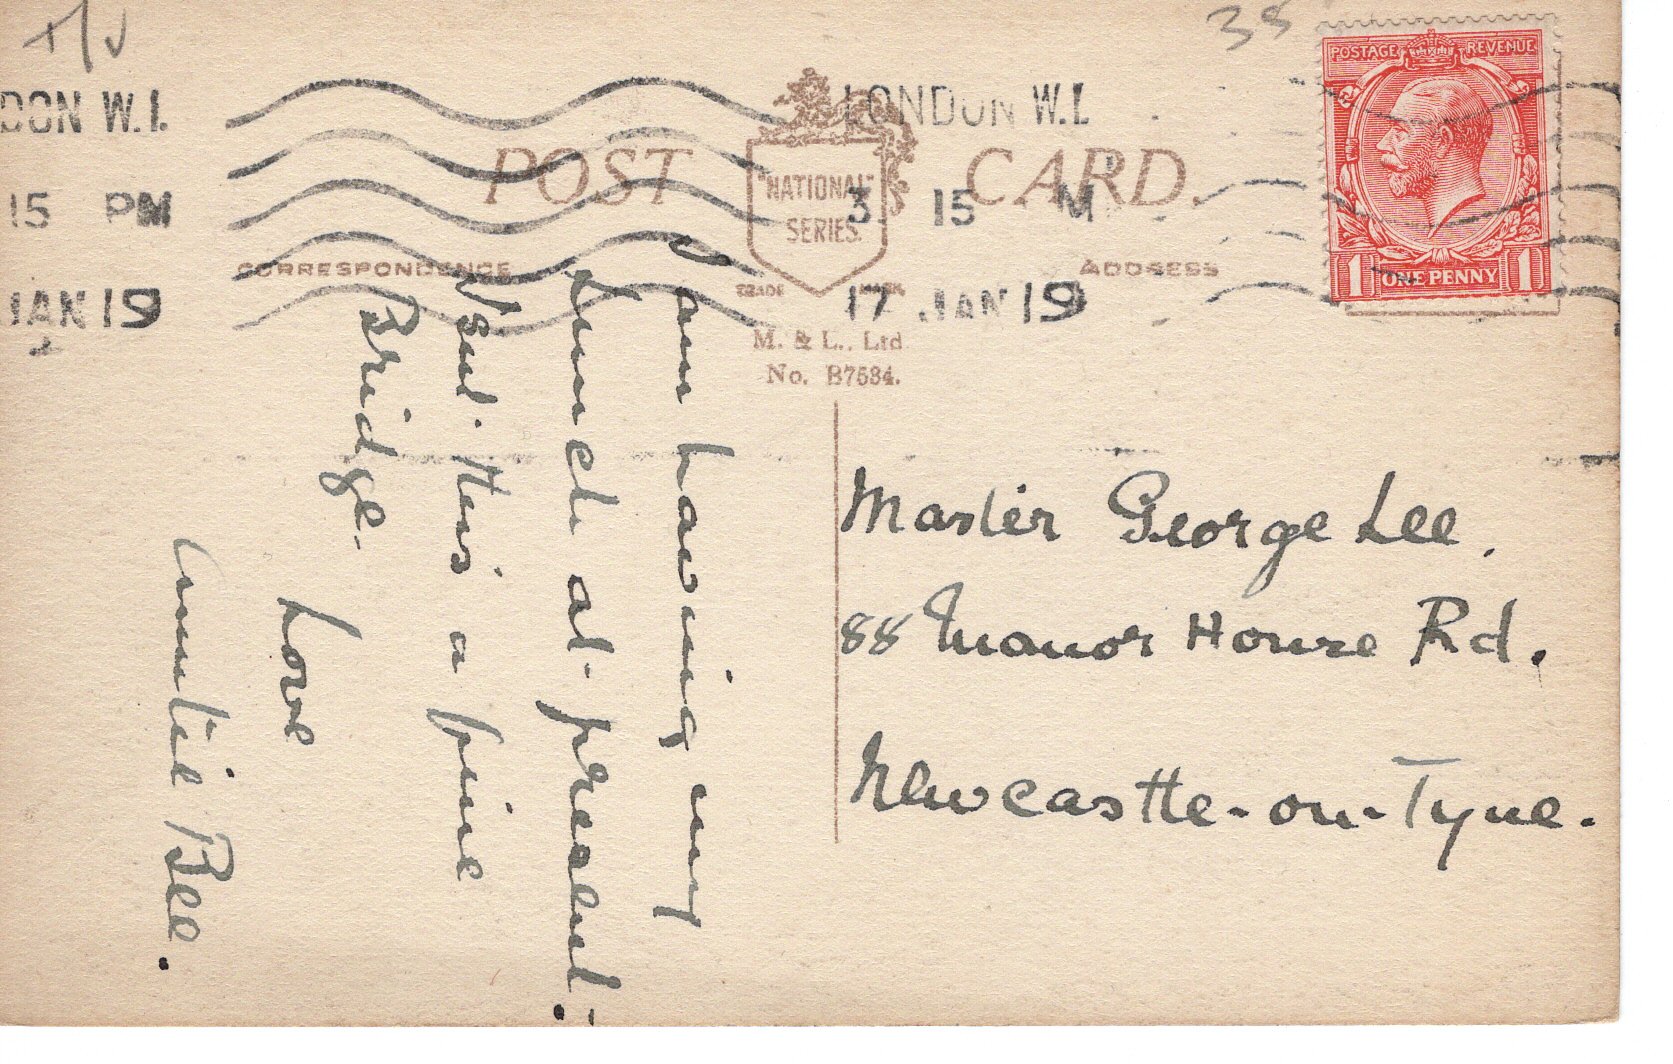 LONDON W.1.
3 15 M
17 JAN 19
DON W.1.
15 PM
JAN 19
38
POSTAGE REVENUE
1 ONE PENNY 1
POST CARD.
"NATIONAL"
SERIES.
TRADE MARK
CORRESPONDENCE
ADDRESS
M. & L., Ltd
No. B7634.
I am having my
lunch at present.
Isn't this a fine
Bridge.
Love
Auntie Bee.
Master George Lee.
88 Manor House Rd.
Newcastle-on-Tyne.